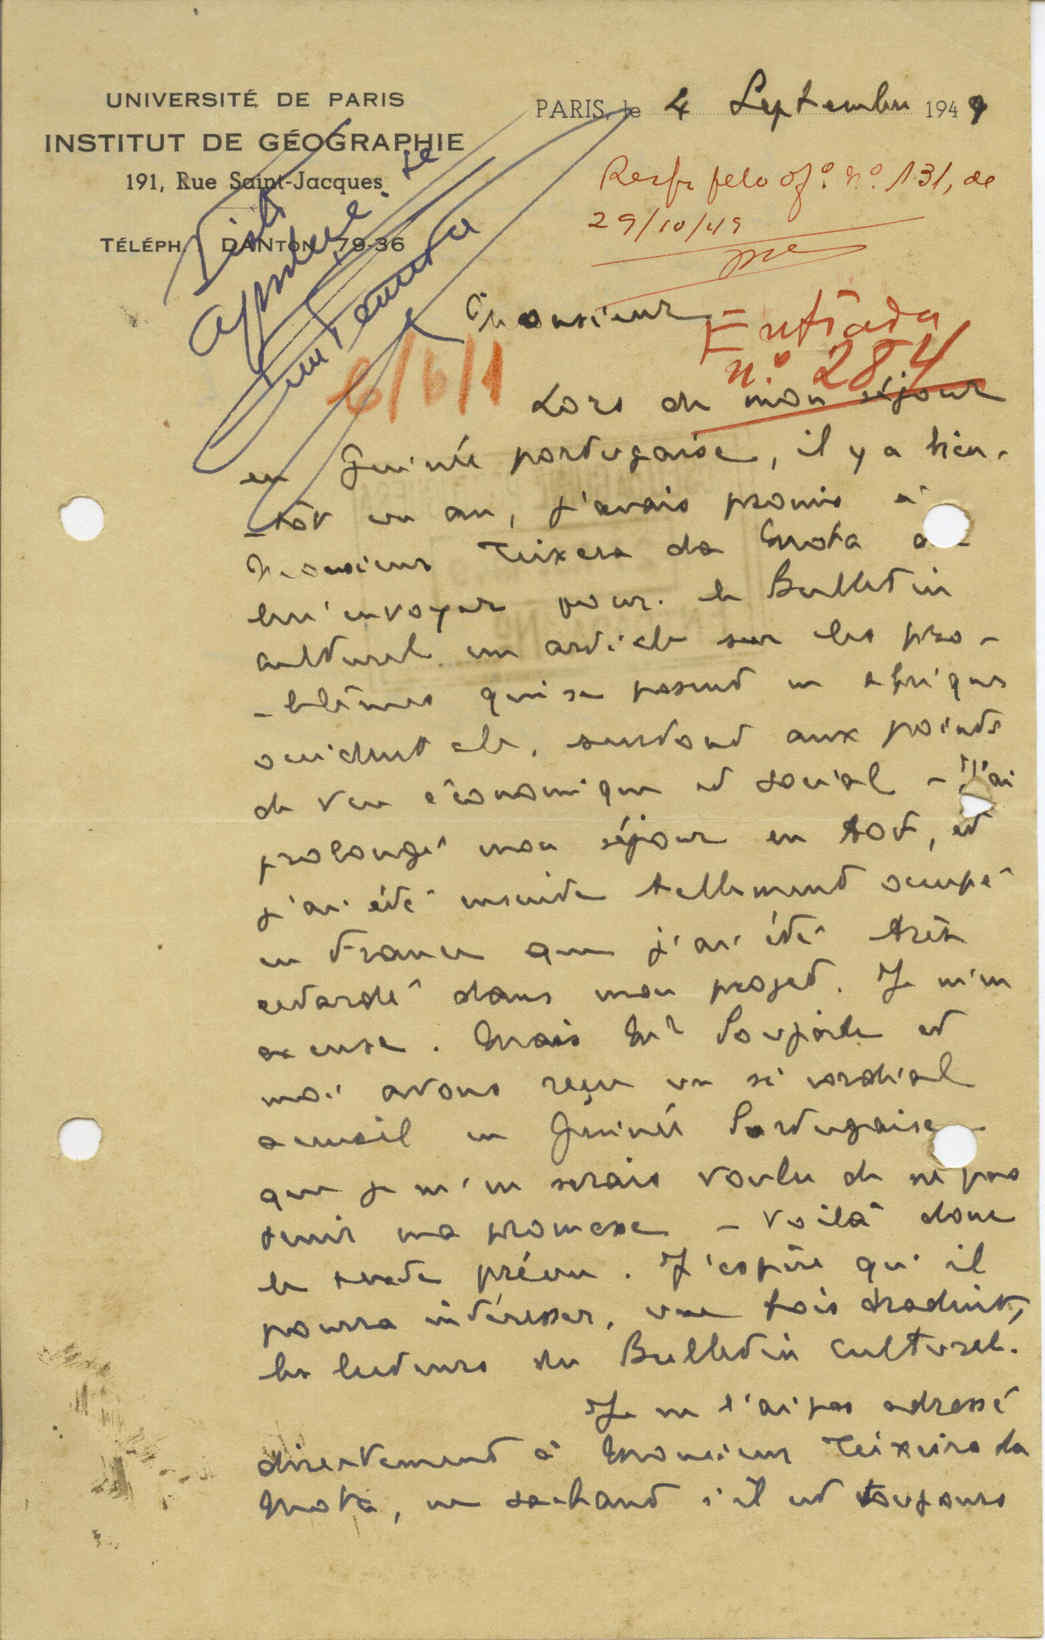 UNIVERSITÉ DE PARIS
INSTITUT DE GÉOGRAPHIE
191, Rue Saint-Jacques
TÉLÉPH. : DANTON 79-36
PARIS, le 4 Septembre 1949
Resp. pelo of.º n.º 131, de
29/10/49
Entrada
n.º 284
6/6/1
Monsieur
Lors de mon séjour
en Guinée portugaise, il y a bien-
-tôt un an, j'avais promis à
Monsieur Teixera da Mota de
lui envoyer pour le Bulletin
culturel un article sur les pro-
-blèmes qui se posent en Afrique
occidentale, surtout aux points
de vue économique et social - J'ai
prolongé mon séjour en AOF, et
j'ai été ensuite tellement occupé
en France que j'ai été très
retardé dans mon projet. Je m'en
excuse. Mais Mr Pouquet et
moi avons reçu un si cordial
accueil en Guinée Portugaise
que je m'en serais voulu de ne pas
tenir ma promesse - Voilà donc
le texte prévu. J'espère qu'il
pourra intéresser, une fois traduit,
les lecteurs du Bulletin Culturel.
Je ne l'ai pas adressé
directement à Monsieur Teixeira da
Mota, ne sachant s'il est toujours